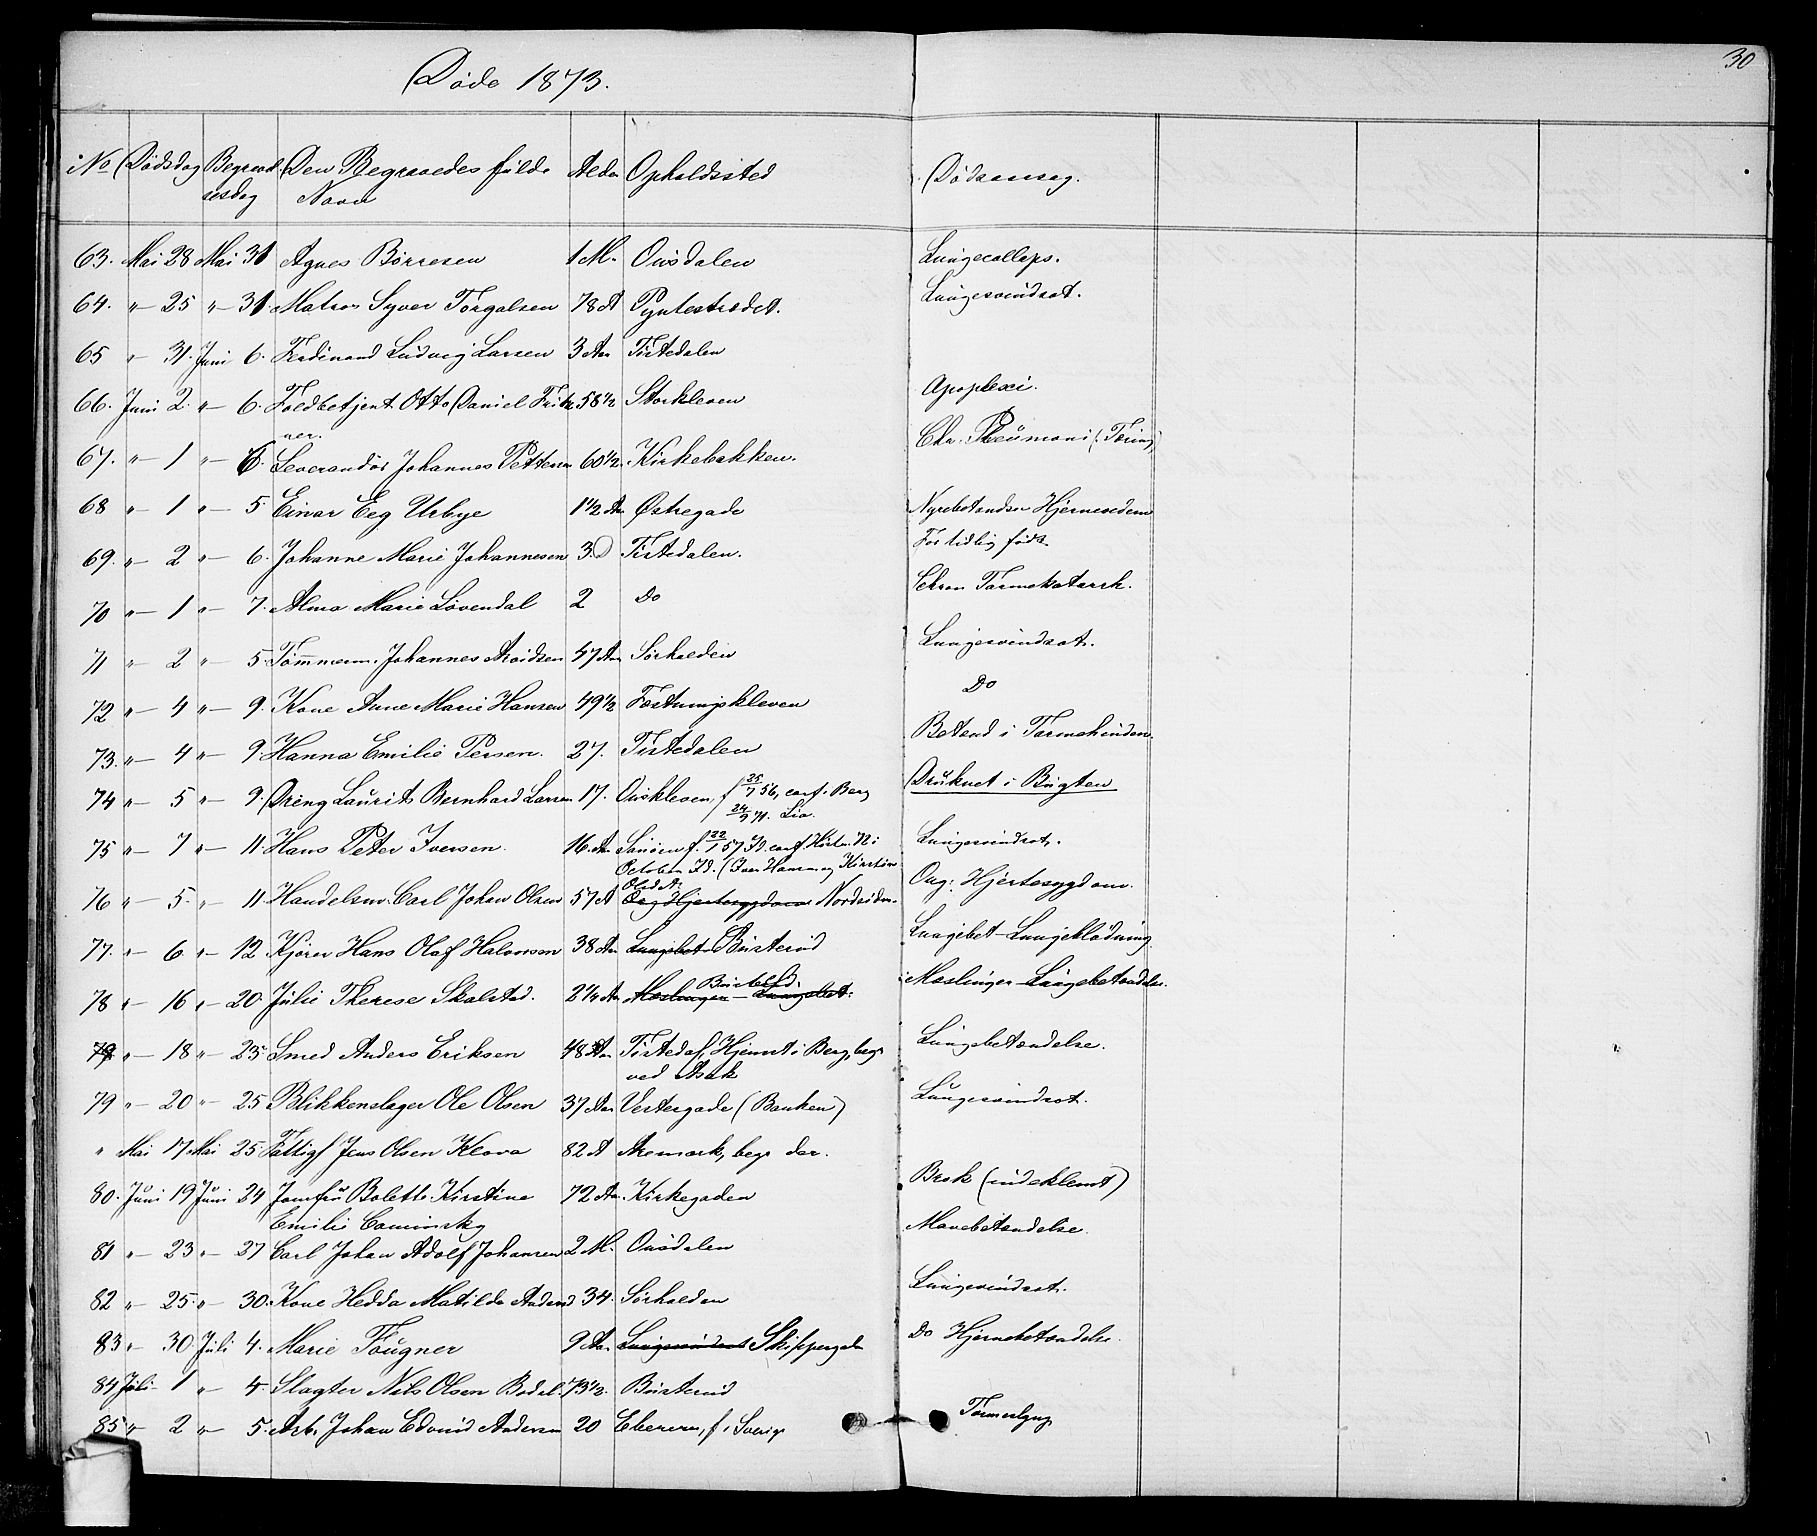 30
Døde 1873.
No Dødsdag Begravelsesdag Den Begravedes fulde Navn Alder Opholdssted Dødsaarsag.
63. Mai 28 Mai 31 Agnes Børresen 1 M. Ousdalen Lungecollaps.
64. " - 25 " - 31. Matros Syver Torgalsen 78 A Pyntestrædet. Lungesvindsot.
65 " 31. Juni 6. Ferdinand Ludvig Larsen 3 Aar Tistedalen
66. Juni 2. " - 6. Toldbetjent Otto Daniel Fritz 58 1/2 Storkleven Apoplexi.
ner.
67. " - 1 " - 6. Leverandør Johannes Pettersen 60 1/2. Kirkebakken. Chr. Pneumoni (: Tæring)
68 " - 1 " - 5 Einar Eeg Urbye 1 1/2 Aar Østregade Nyrebetændse Hjerneødem
69. " - 2 " - 6. Johanne Marie Johannesen 3. D Tistedalen. For tidlig født
70 " - 1 " - 7. Alma Marie Løvendal 2 Do Chron Tarmekatarrh.
71 " - 2 " - 5. Tømmerm. Johannes Arvidsen 47 Aar Sørhalden Lungesvindsot.
72 " - 4 " - 9. Kone Anne Marie Hansen 49 1/2 Fæstningskleven Do
73. " - 4 " - 9. Hanna Emilie Persen. 27. Tistedalen Betænd i Tarmehinden.
74 " - 5 " - 9. Dreng Laurits Bernhard Larsen 17. Ouskleven, f 25/7 56, conf. Berg Druknet i Bugten
24/9 71. Lie.
75 " - 7 " - 11. Hans Peter Iversen. 16. Aar f. 22/1 57 Id. conf. Høsten 72 i Lungesvindsot.
October Id. (Iver Hansen og Kirstine
Olsd
76 " - 5. " - 11. Handelsm. Carl Johan Olsen 57 A Org Hjertesygdom Nordsiden. Org: Hjertesygdom.
77. " - 6. " - 12. Kjører Hans Olaf Halvorsen 38 Aar Lungebet Busterud Lungebet - Lungeblødning
Busterud.
78 " - 16 " - 20. Julie Therese Skolstad. 2 1/4 Aar Meslinger - Lungebet: Meslinger - Lungebetændelse.
79 " - 18 " - 23. Smed Anders Eriksen 48 Aar Tistedal, Hjemst i Berg, begr Lungebetændelse.
ved Asak
79 " - 20 " - 25 Blikkenslager Ole Olsen 37 Aar Vestergade (Banken) Lungesvindsot.
" Mai 17. Mai 25. Fattigl Jens Olsen Klova 82 A Aremark, begr der.
80. Juni 19 Juni 24 Jomfru Bolette Kirstine 72 Aar. Kirkegaden Brok (indeklemt)
Emilie Caminsky
81 " - 23 " - 27 Carl Johan Adolf Johansen 2 M. Ousdalen Mavebetændelse.
82 " - 25. " - 30. Kone Hedda Matilde Andersd 34. Sørhalden Lungesvindsot.
83 " - 30. Juli 4. Marie Fougner 9 Aar Lungesvindsot Skippergade Do Hjernebetændelse.
84 Juli 1 " - 4. Slagter Nils Olsen Bodal. 73 1/2. Busterud
85 " - 2 " - 5. Arb. Johan Edvind Andersen 20 f. i Sverige